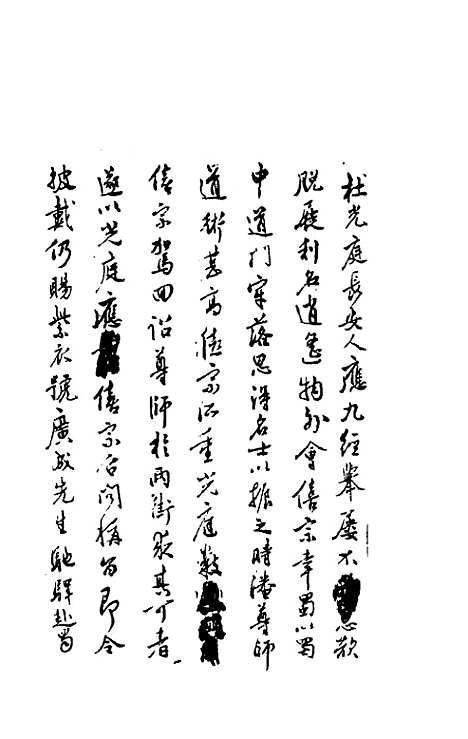 杜光庭長安人應九經舉屢不忘歎
脫屣利名逍遙物外會僖宗幸蜀以蜀
中道門牢落思得名士以振之時潘尊師
道術甚高僖宗所重光庭數
僖宗駕回詔尊師於兩街求其可者
遂以光庭應僖宗召問稱旨即令
披戴仍賜紫衣號廣成先生馳驛赴蜀